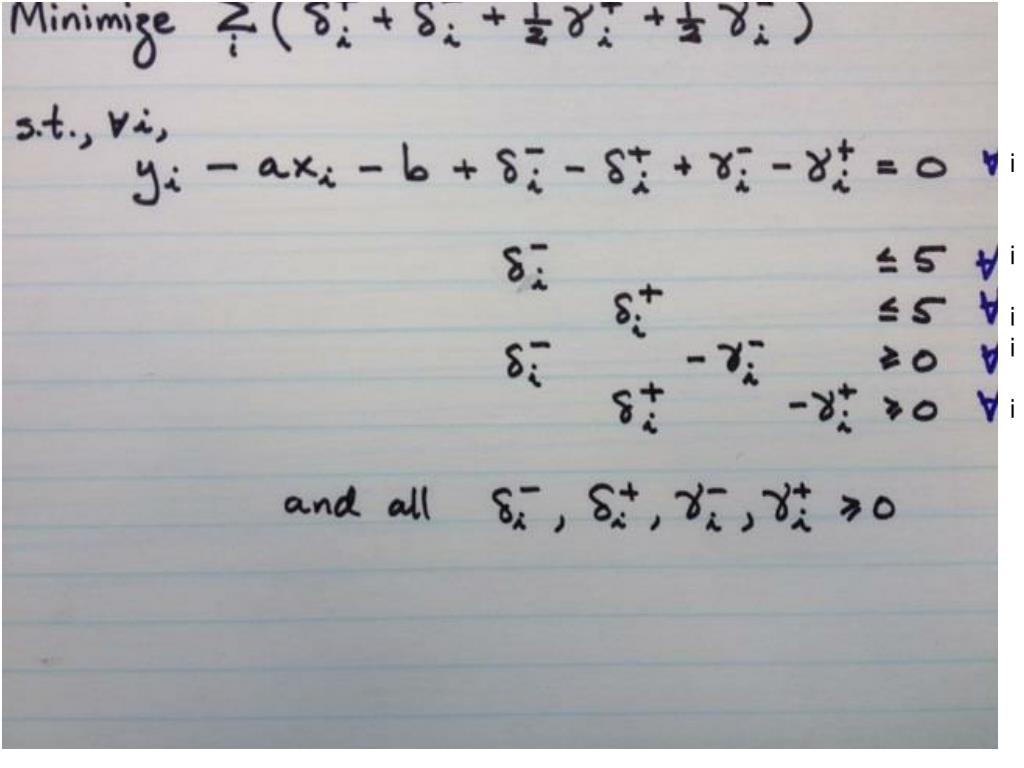 Minimize Σ_i ( δ_i^+ + δ_i^- + ½ γ_i^+ + ½ γ_i^- )
s.t., ∀i,
y_i - ax_i - b + δ_i^- - δ_i^+ + γ_i^- - γ_i^+ = 0 ∀ i
δ_i^- ≤ 5 ∀ i
δ_i^+ ≤ 5 ∀ i
δ_i^- - γ_i^- ≥ 0 ∀ i
δ_i^+ - γ_i^+ ≥ 0 ∀ i
and all δ_i^-, δ_i^+, γ_i^-, γ_i^+ ≥ 0